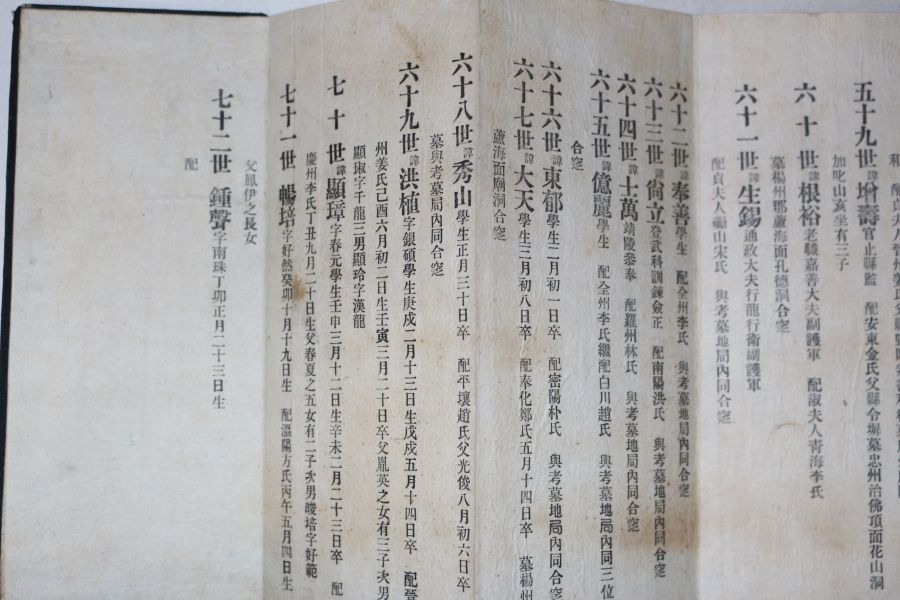 配氏夫人晉州姜氏父
五十九世諱增壽官止縣監 配安東金氏父縣令墀墓忠州治佛頂面花山洞
加叱山亥坐有三子
六十 世諱根裕老職嘉善大夫副護軍 配淑夫人靑海李氏
墓楊州郡蘆海面孔德洞合窆
六十一世諱生錫通政大夫行龍行衛副護軍
配貞夫人礪山宋氏 與考墓地局內同合窆
六十二世諱奉善學生 配全州李氏 與考墓地局內同合窆
六十三世諱尙立登武科訓鍊僉正 配南陽洪氏 與考墓地局內同合窆
六十四世諱士萬靖陵參奉 配羅州林氏 與考墓地局內同合窆
六十五世諱億麗學生 配全州李氏繼配白川趙氏 與考墓地局內同三位
合窆
六十六世諱東郁學生二月初一日卒 配密陽朴氏 與考墓地局內同合窆
六十七世諱大天學生三月初八日卒 配奉化鄭氏五月十四日卒 墓楊州
蘆海面廟洞合窆
六十八世諱秀山學生正月三十日卒 配平壤趙氏父光俊八月初六日卒
墓與考墓局內同合窆
六十九世諱洪植字銀碩學生庚戌二月十三日生戊戌五月十四日卒 配晉
州姜氏己酉六月初二日生壬寅三月二十日卒父胤英之女有三子次男
顯琡字千龍三男顯玲字漢龍
七十 世諱顯璋字春元學生壬申三月十二日生辛未二月二十三日卒 配
慶州李氏丁丑九月二十日生父春夏之五女有二子次男晙培字好範
七十一世 暢培字好然癸卯十月十九日生 配溫陽方氏丙午五月四日生
父鳳伊之長女
七十二世 鍾聲字南珠丁卯正月二十三日生
配